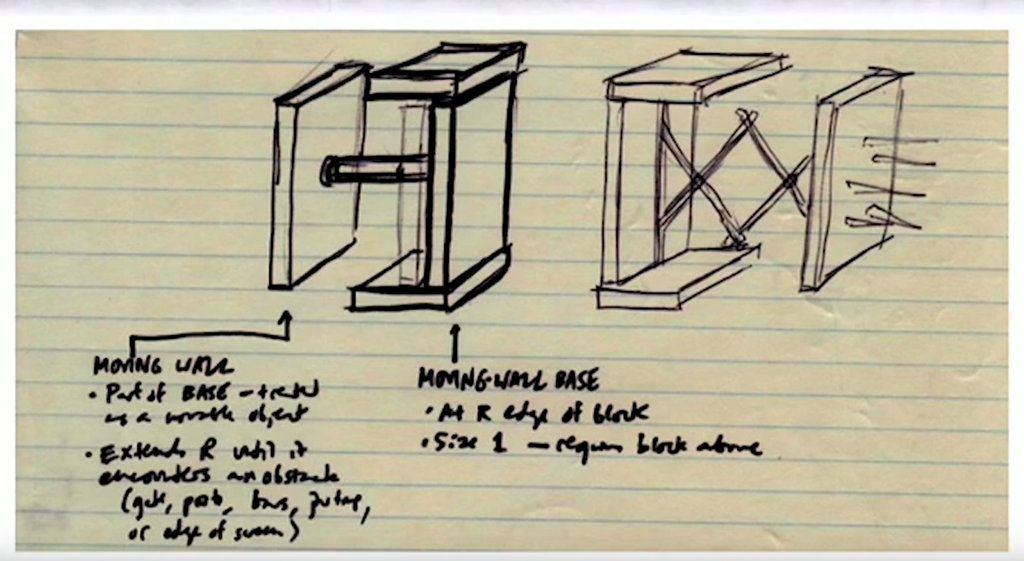 MOVING WALL
• Part of BASE — treated
as a movable object
• Extends R until it
encounters an obstacle
(gate, posts, bars,
or edge of screen)
MOVING-WALL BASE
• At R edge of block
• Size 1 — requires block above